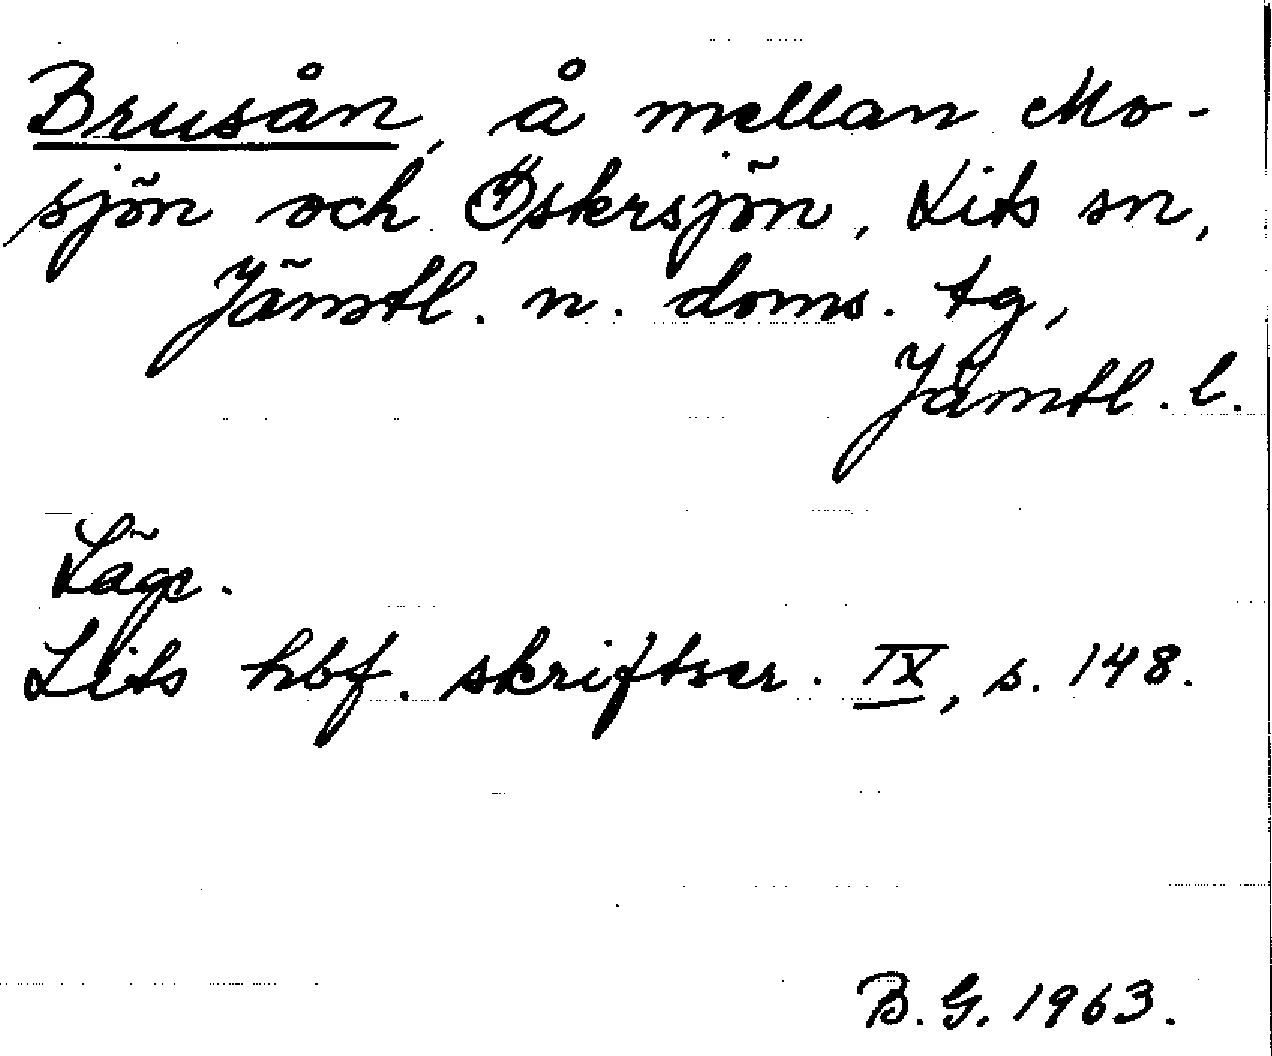 Brusån, å mellan Mo-
sjön och Öskrsjön, Lits sn,
Jämtl. n. doms. tg,
Jämtl. l.
Läge.
Lits hbf. skriftser. IX, s. 148.
B. G. 1963.